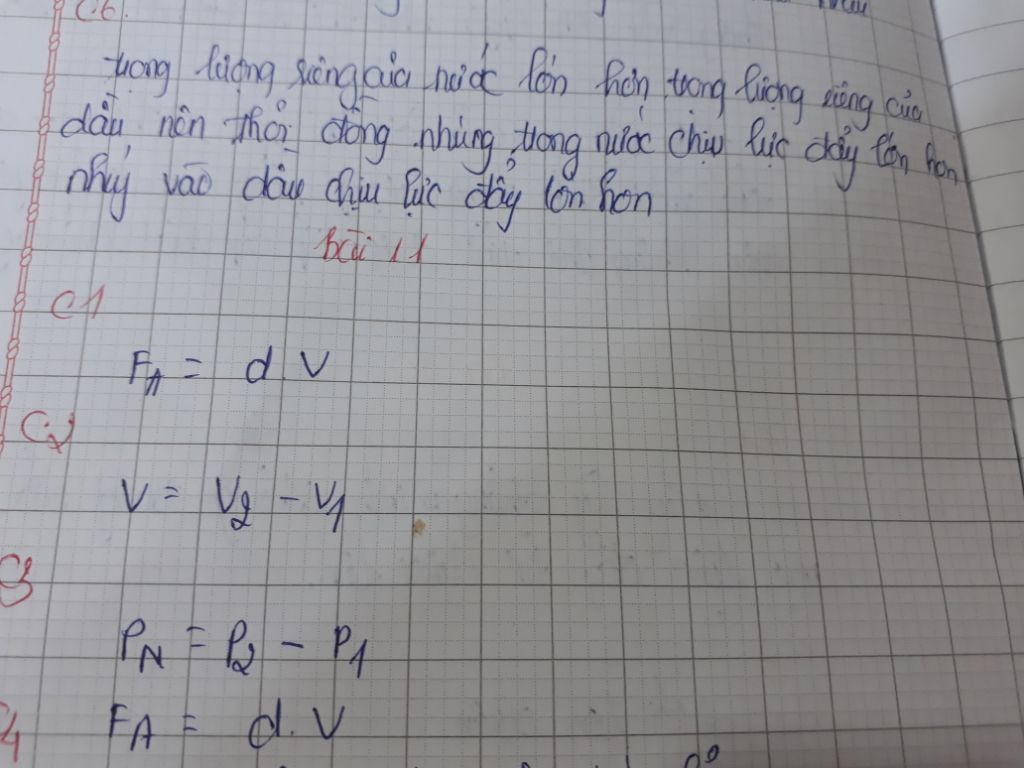 C6.
trọng lượng riêng của nước lớn hơn trọng lượng riêng của
dầu nên thỏi đồng nhúng trong nước chịu lực đẩy lớn hơn
nhúy vào dầu chịu lực đẩy lớn hơn
bài 11
C1
FA = d.V
C2
V = V2 - V1
C3
PN = P2 - P1
FA = d.V
4